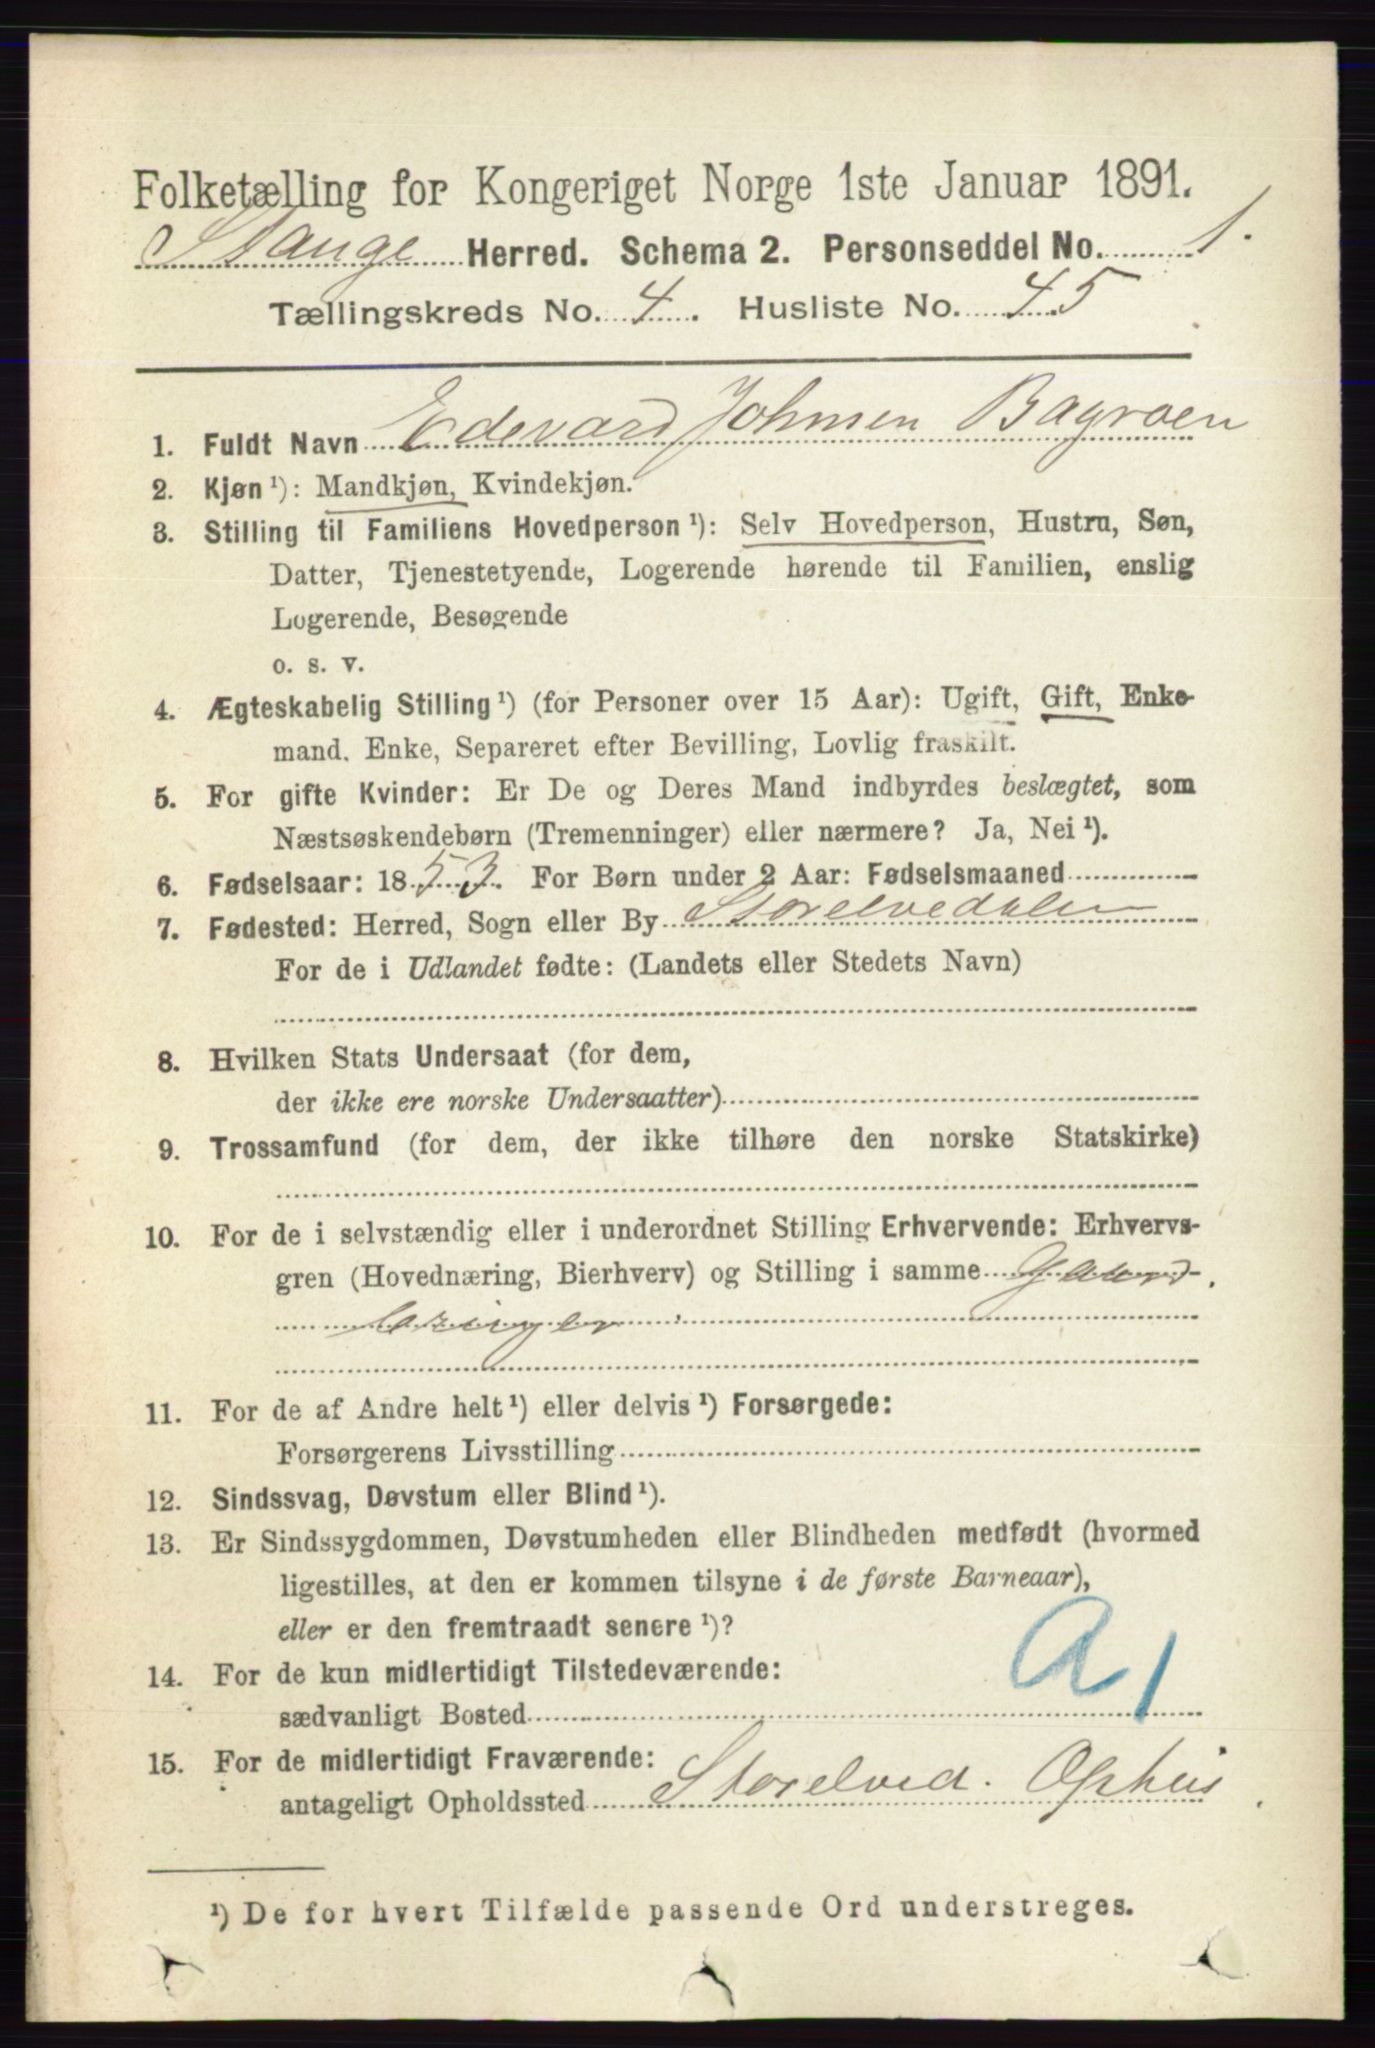 Folketælling for Kongeriget Norge 1ste Januar 1891.
Stange Herred. Schema 2. Personseddel No. 1.
Tællingskreds No. 4. Husliste No. 45
1. Fuldt Navn Edevard Johnsen Bagroen
2. Kjøn ¹): Mandkjøn, Kvindekjøn.
3. Stilling til Familiens Hovedperson ¹): Selv Hovedperson, Hustru, Søn,
Datter, Tjenestetyende, Logerende hørende til Familien, enslig
Logerende, Besøgende
o. s. v.
4. Ægteskabelig Stilling ¹) (for Personer over 15 Aar): Ugift, Gift, Enke-
mand, Enke, Separeret efter Bevilling, Lovlig fraskilt.
5. For gifte Kvinder: Er De og Deres Mand indbyrdes beslægtet, som
Næstsøskendebørn (Tremenninger) eller nærmere? Ja, Nei ¹).
6. Fødselsaar: 1853. For Børn under 2 Aar: Fødselsmaaned
7. Fødested: Herred, Sogn eller By Storelvedalen
For de i Udlandet fødte: (Landets eller Stedets Navn)
8. Hvilken Stats Undersaat (for dem,
der ikke ere norske Undersaatter)
9. Trossamfund (for dem, der ikke tilhøre den norske Statskirke)
10. For de i selvstændig eller i underordnet Stilling Erhvervende: Erhvervs-
gren (Hovednæring, Bierhverv) og Stilling i samme
11. For de af Andre helt ¹) eller delvis ¹) Forsørgede:
Forsørgerens Livsstilling
12. Sindssvag, Døvstum eller Blind ¹).
13. Er Sindssygdommen, Døvstumheden eller Blindheden medfødt (hvormed
ligestilles, at den er kommen tilsyne i de første Barneaar),
eller er den fremtraadt senere ¹)?
A1
14. For de kun midlertidigt Tilstedeværende:
sædvanligt Bosted
15. For de midlertidigt Fraværende:
antageligt Opholdssted Storelved. Ophus
¹) De for hvert Tilfælde passende Ord understreges.